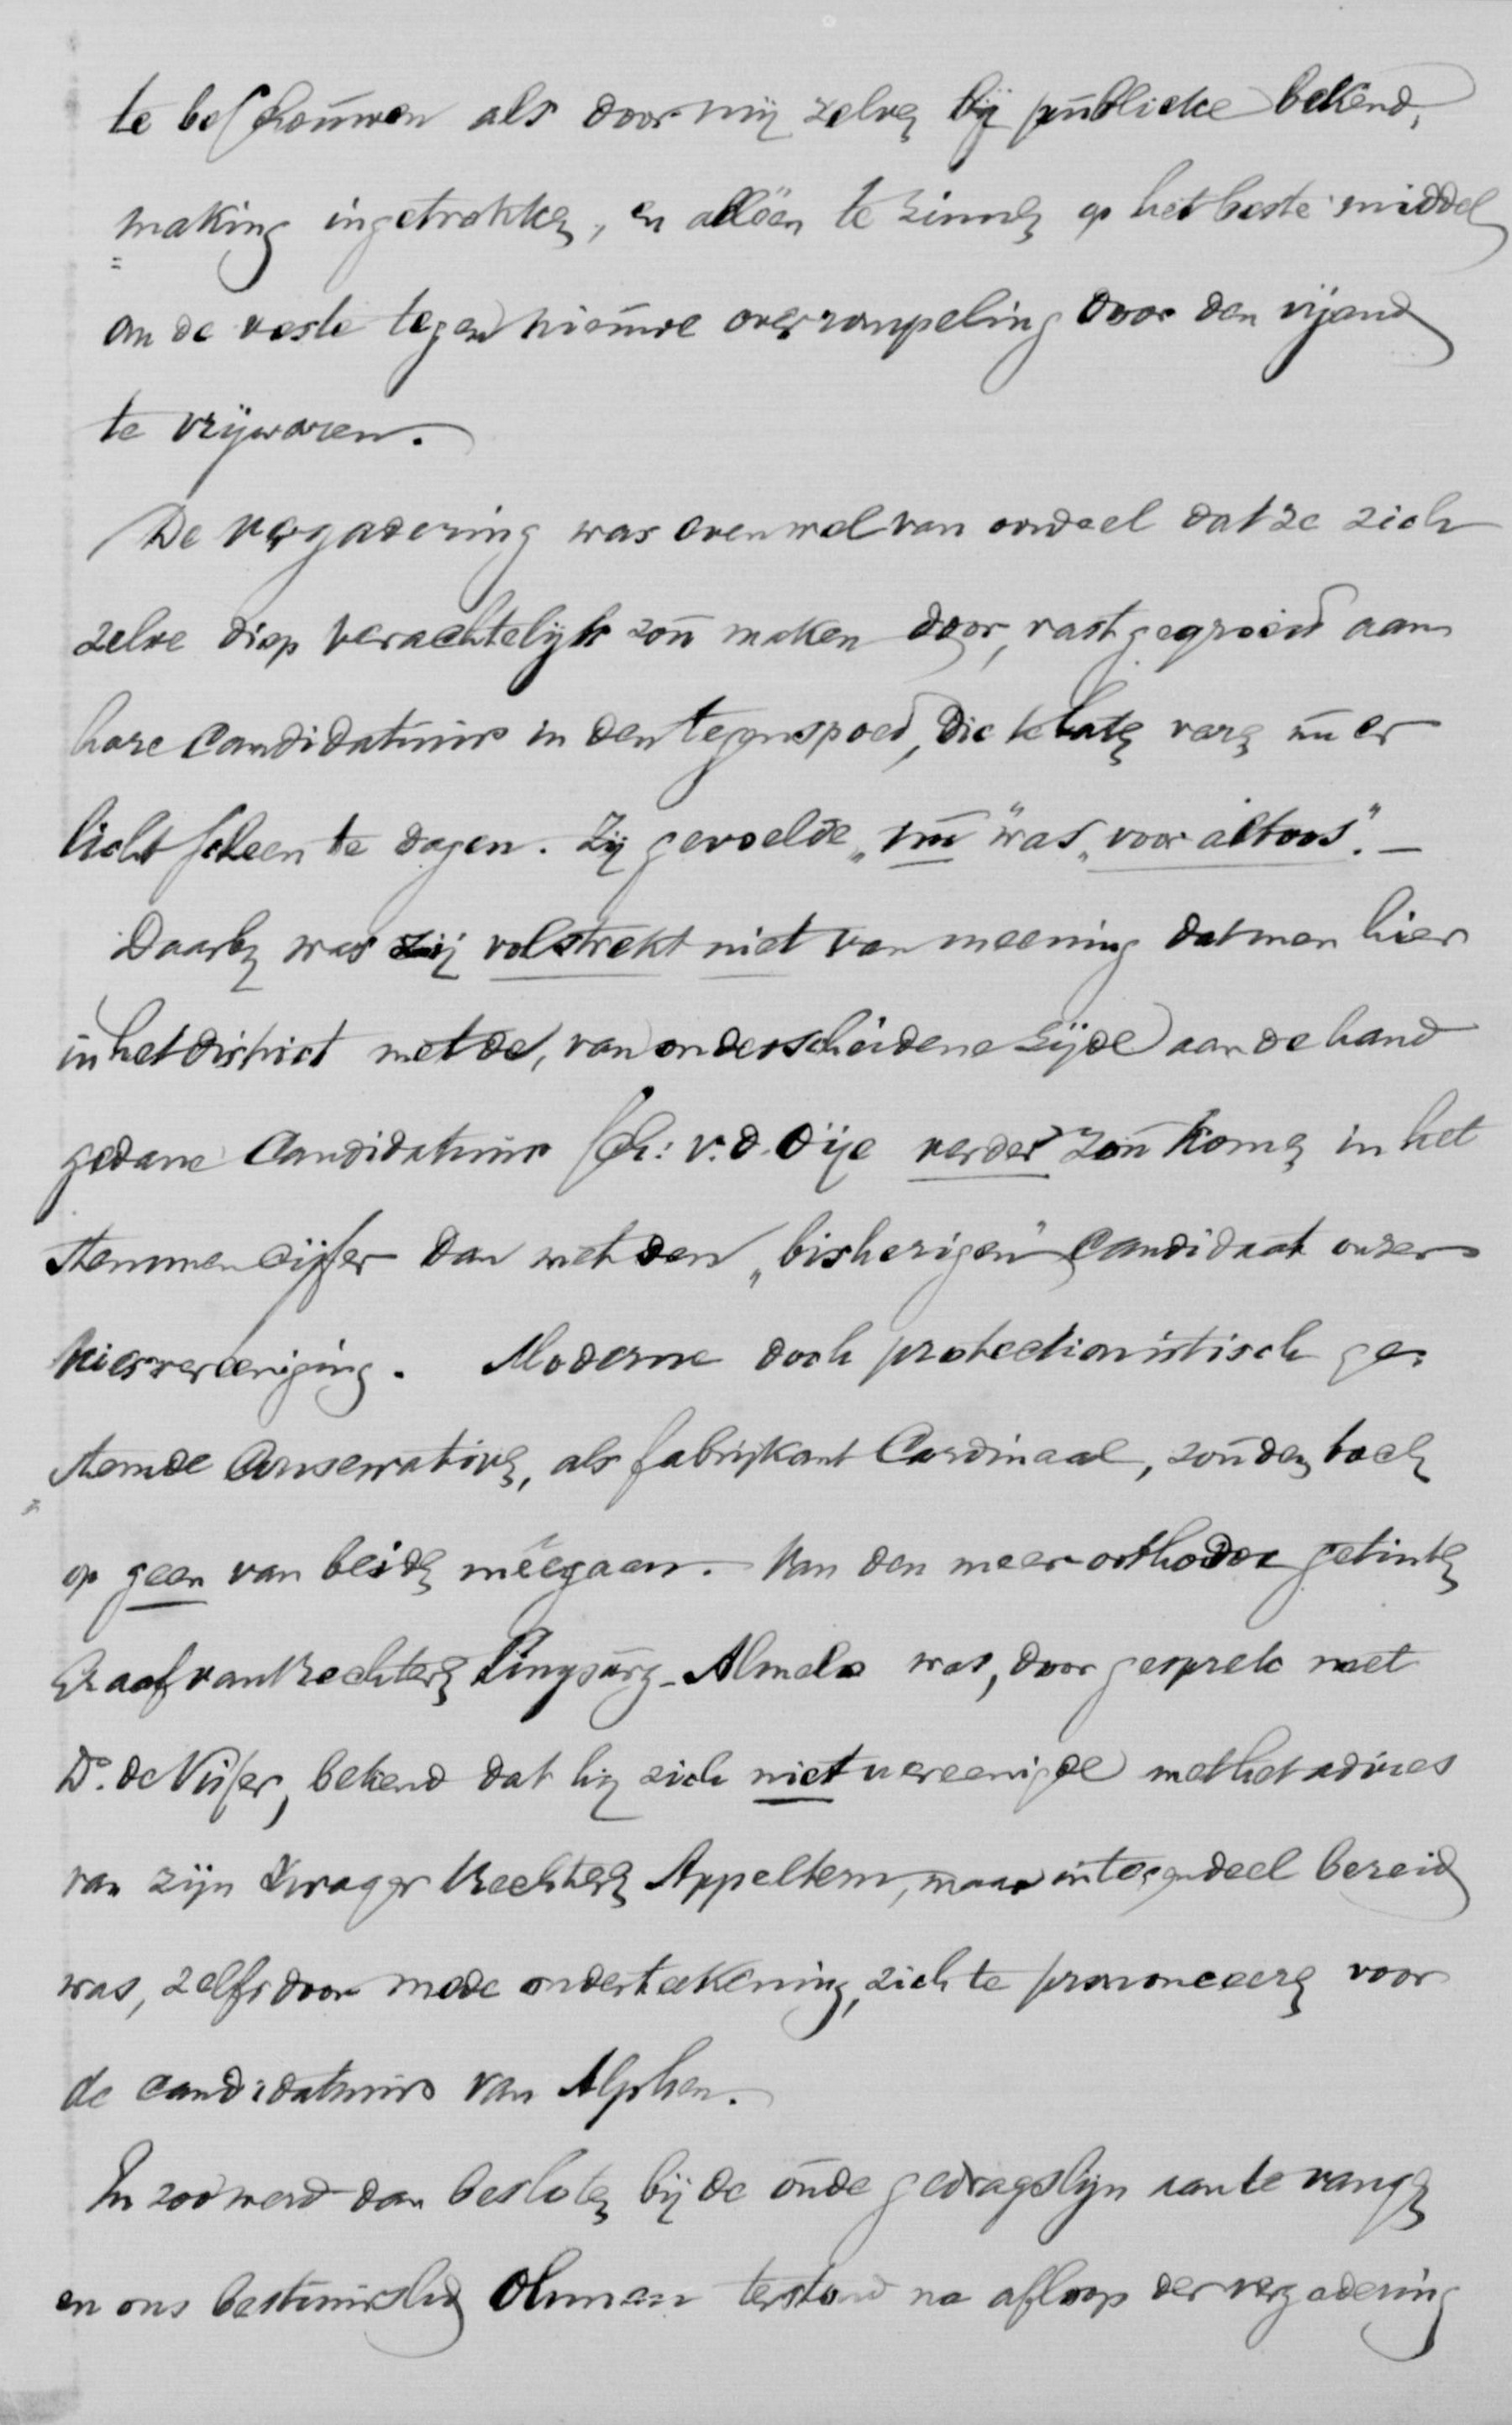 te beschouwen als door mij zelven bij publieke bekend-
making ingetrokken, en alléén te zinnen op het beste middel
om de veste tegen nieuwe overrompeling door den vijand
te vrijwaren.
De vergadering was evenwel van oordeel dat ze zich
zelve diep verachtelijk zou maken door, vastgegroeid aan
hare candidatuur in den tegenspoed, die te laten varen nu er
licht scheen te dagen. Zij gevoelde „nu" was „voor altoos". —
Daarbij was zij volstrekt niet van meening dat men hier
in het district met de, van onderscheidene zijde aan de hand
gedane candidatuur Sch: v. d. Oije verder zou komen in het
stemmencijfer dan met den „bisherigen" candidaat onzer
kiesvereeniging. Moderne doch protectionistisch ge-
stemde Conservatieven, als fabrijkant Cardinaal, zouden toch
op geen van beiden méégaan. Van den meer orthodox getinten
Graaf van Rechteren Limpurg-Almelo was, door gesprek met
Ds. de Visser, bekend dat hij zich niet vereenigde met het advies
van zijn zwager Rechteren Appeltern, maar integendeel bereid
was, zelfs door mede onderteekening, zich te prononceeren voor
de candidatuur van Alphen.
En zoo werd dan besloten bij de oude gedragslijn aan te vangen
en ons bestuurslid Ohman terstond na afloop der vergadering